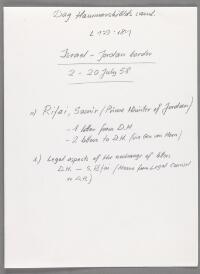 Dag Hammarskjölds saml.
L 179:
Israel - Jordan border
2 - 20 July 58
a) Rifai, Samir (Prime Minister of Jordan)
- 1 letter from D.H
- 2 letters to D.H.
b) Legal aspects of the exchange of letters
D.H. - S. Rifai (Memo from Legal Counsel